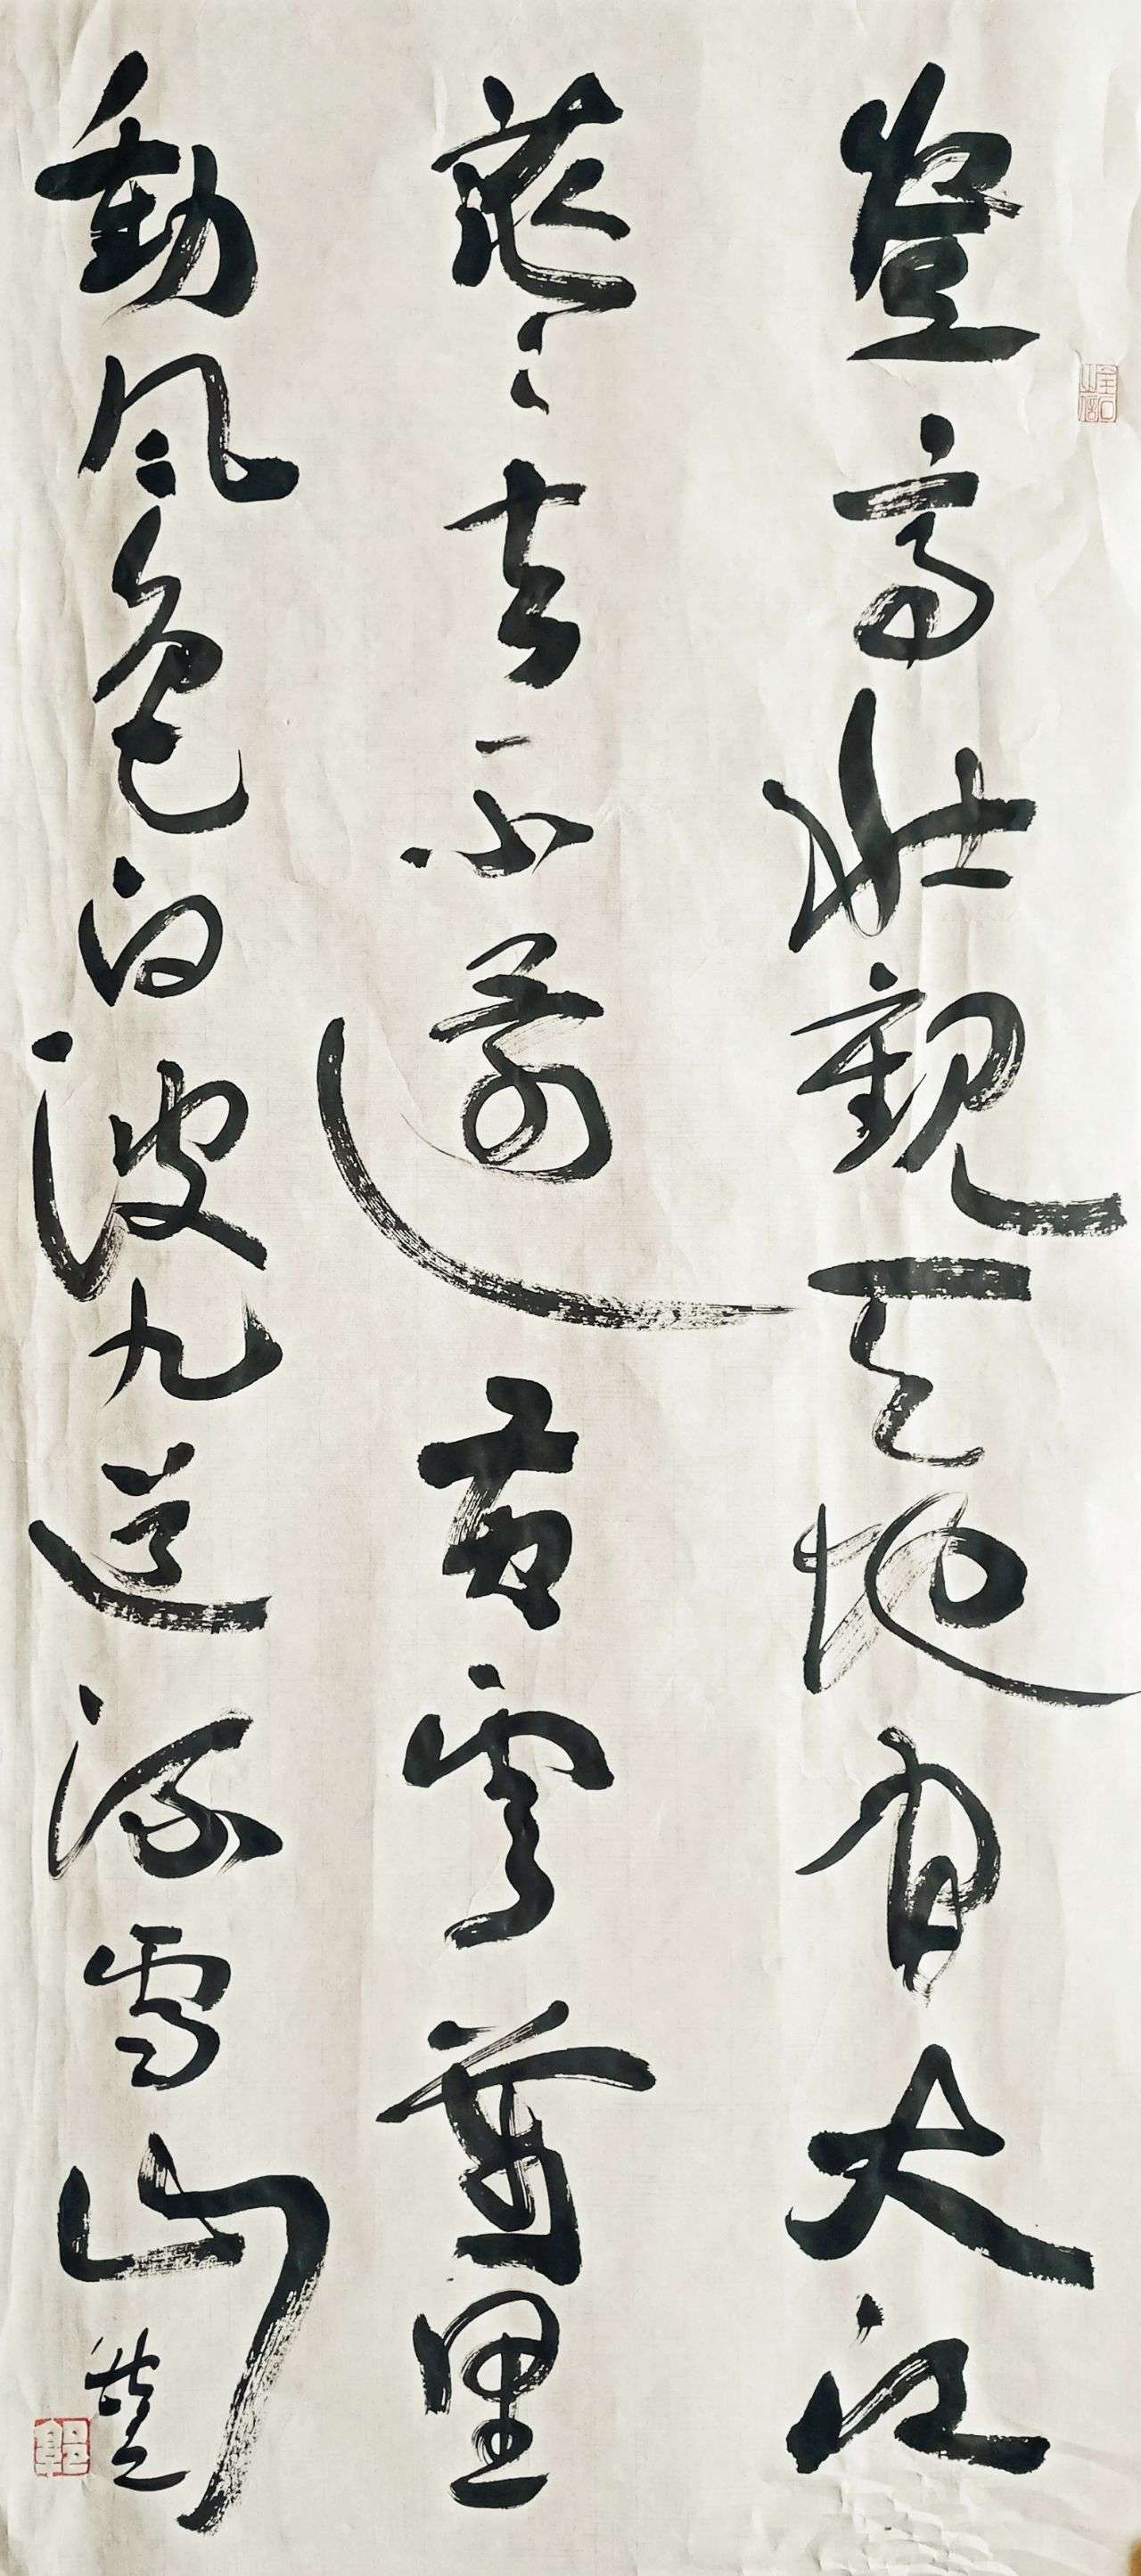 登高壯觀天地間大江
茫〻去不還黃雲萬里
動風色白波九道流雪山